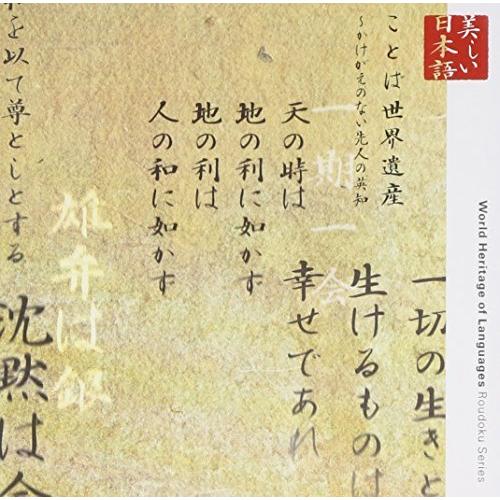 美しい
日本語
World Heritage of Languages Roudoku Series
ことば世界遺産
～かけがえのない先人の英知
一期一会
天の時は
地の利に如かず
地の利は
人の和に如かず
一切の生きと
生けるものは
幸せであれ
雄弁は銀
を以て尊としとする
沈黙は